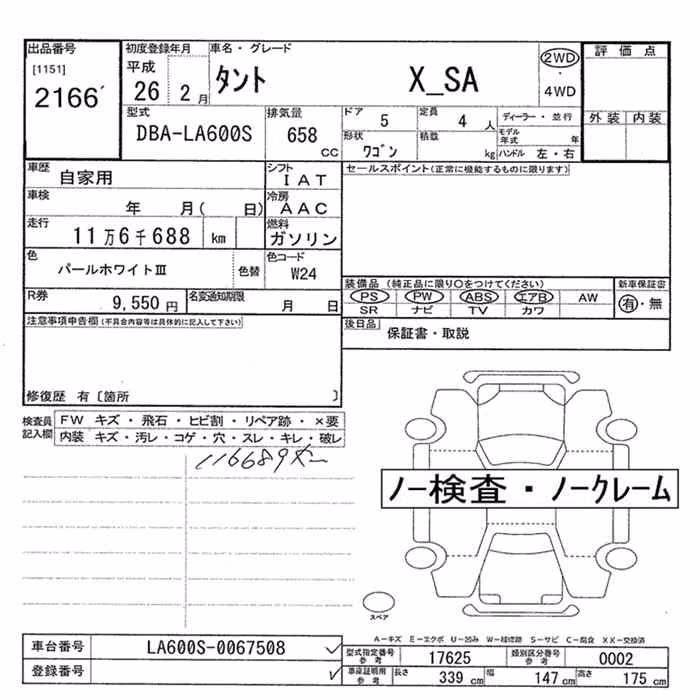 出品番号 初度登録年月 車名・グレード 評価点
[1151] 平成 2WD
2166 26 2月 タント X_SA ・
4WD
型式 排気量 ドア 5 定員 4人 ディーラー・並行 外装 内装
DBA-LA600S 658 CC 形状 ワゴン 積載 kg モデル年式 年
ハンドル 左・右
車歴 自家用 シフト IAT セールスポイント(正常に機能するものに限ります)
車検 年 月( 日) 冷房 AAC
走行 11万6千688 km 燃料 ガソリン
色 パールホワイトⅢ 色替 色コード W24
装備品(純正品に限り○をつけてください) 新車保証書
PS PW ABS エアB AW 有・無
SR ナビ TV カワ
R券 9,550円 名変通知期限 月 日
後日品 保証書・取説
注意事項申告欄(不具合内容等は具体的に記入して下さい)
修復歴 有〔箇所 〕
検査員記入欄 FW キズ・飛石・ヒビ割・リペア跡・×要
内装 キズ・汚レ・コゲ・穴・スレ・キレ・破レ
116689
ノー検査・ノークレーム
スペア
A-キズ E-エクボ U-凹み W-補修跡 S-サビ C-腐食 XX-交換済
車台番号 LA600S-0067508
登録番号
型式指定番号 参考 17625 類別区分番号 参考 0002
車庫証明用 参考 長さ 339 cm 幅 147 cm 高さ 175 cm